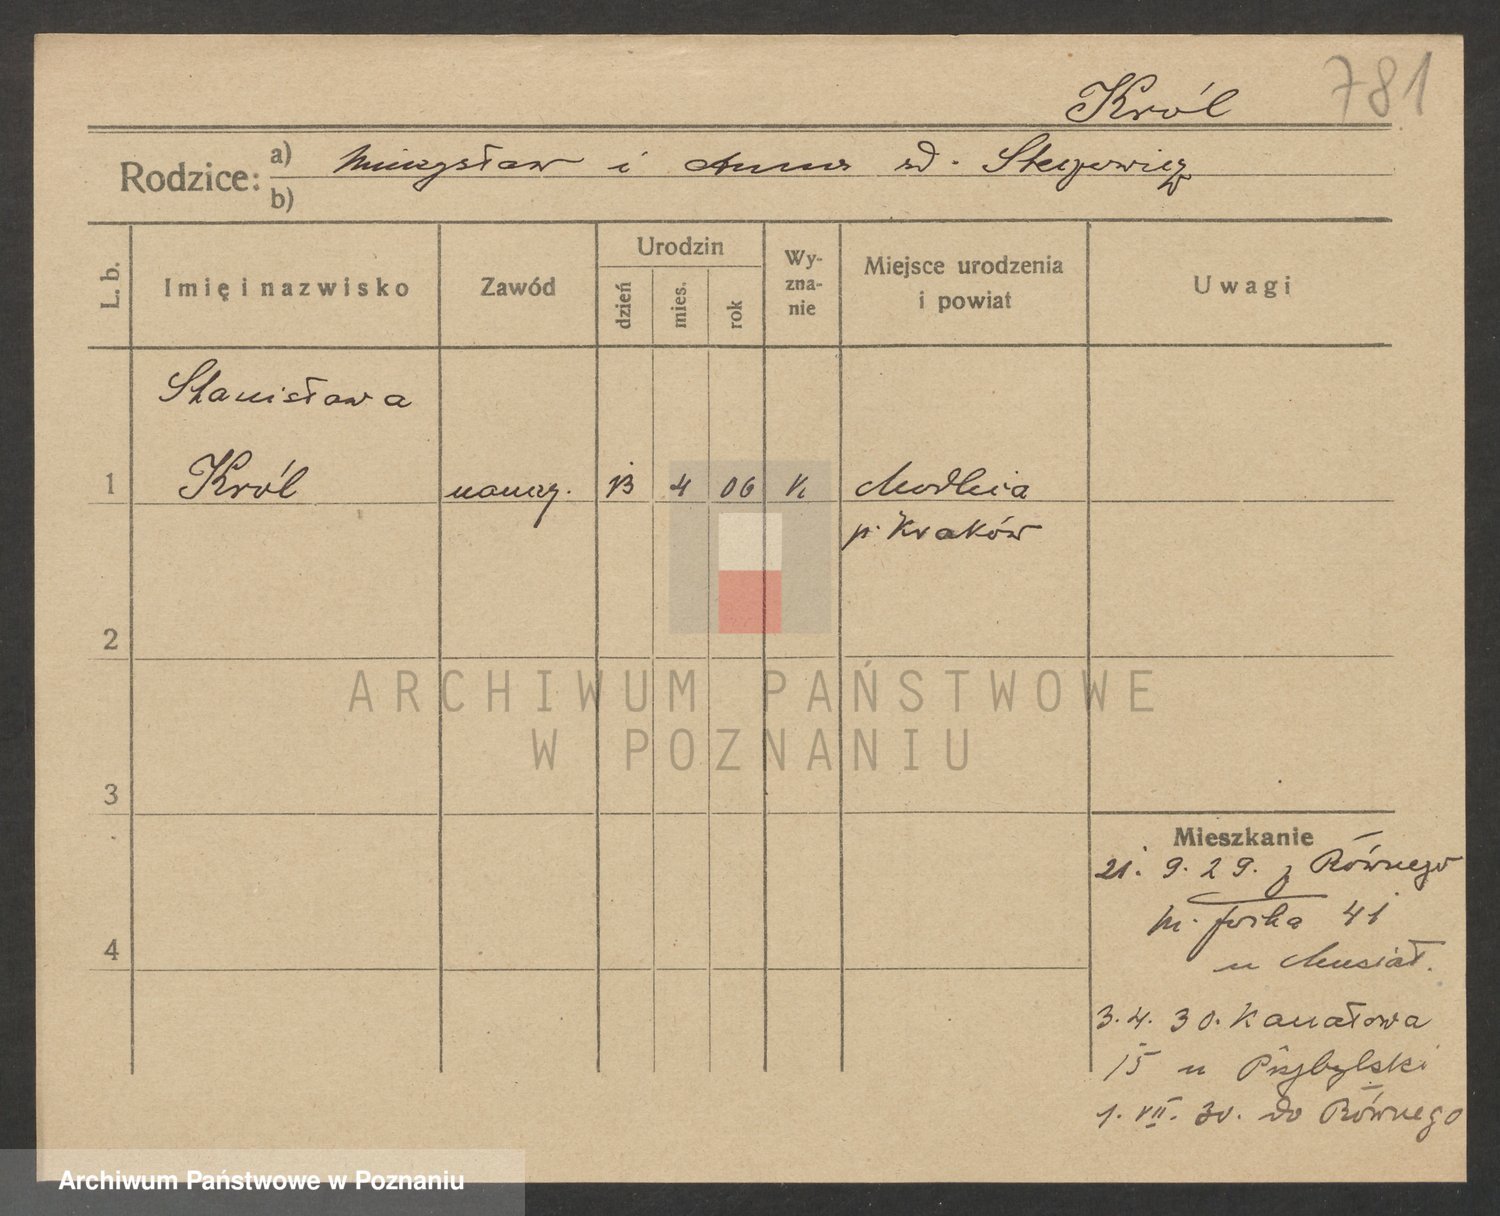 Król 781
Rodzice: a) Mieczysław i Anna zd.
b)
L. b. Imię i nazwisko Zawód Urodzin dzień mies. rok Wy-zna-nie Miejsce urodzenia i powiat Uwagi
Stanisława
1 Król naucz. 13 4 06 k Modlnica
p. Kraków
2
3
4
Mieszkanie
21. 9. 29. z Równego
m. Focha 41
u Musiał.
3. 4. 30. Kanałowa
15 u Przybylski
1. VII. 30. do Równego
ARCHIWUM PAŃSTWOWE
W POZNANIU
Archiwum Państwowe w Poznaniu